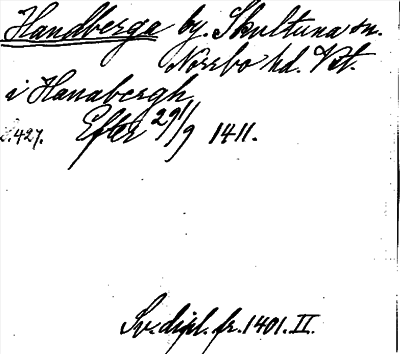 Handberga by. Skultuna sn.
Norrbo hd. Vstm.
i Hanabergh
s.427. Efter 29/9 1411.
Sv. dipl. fr. 1401. II.